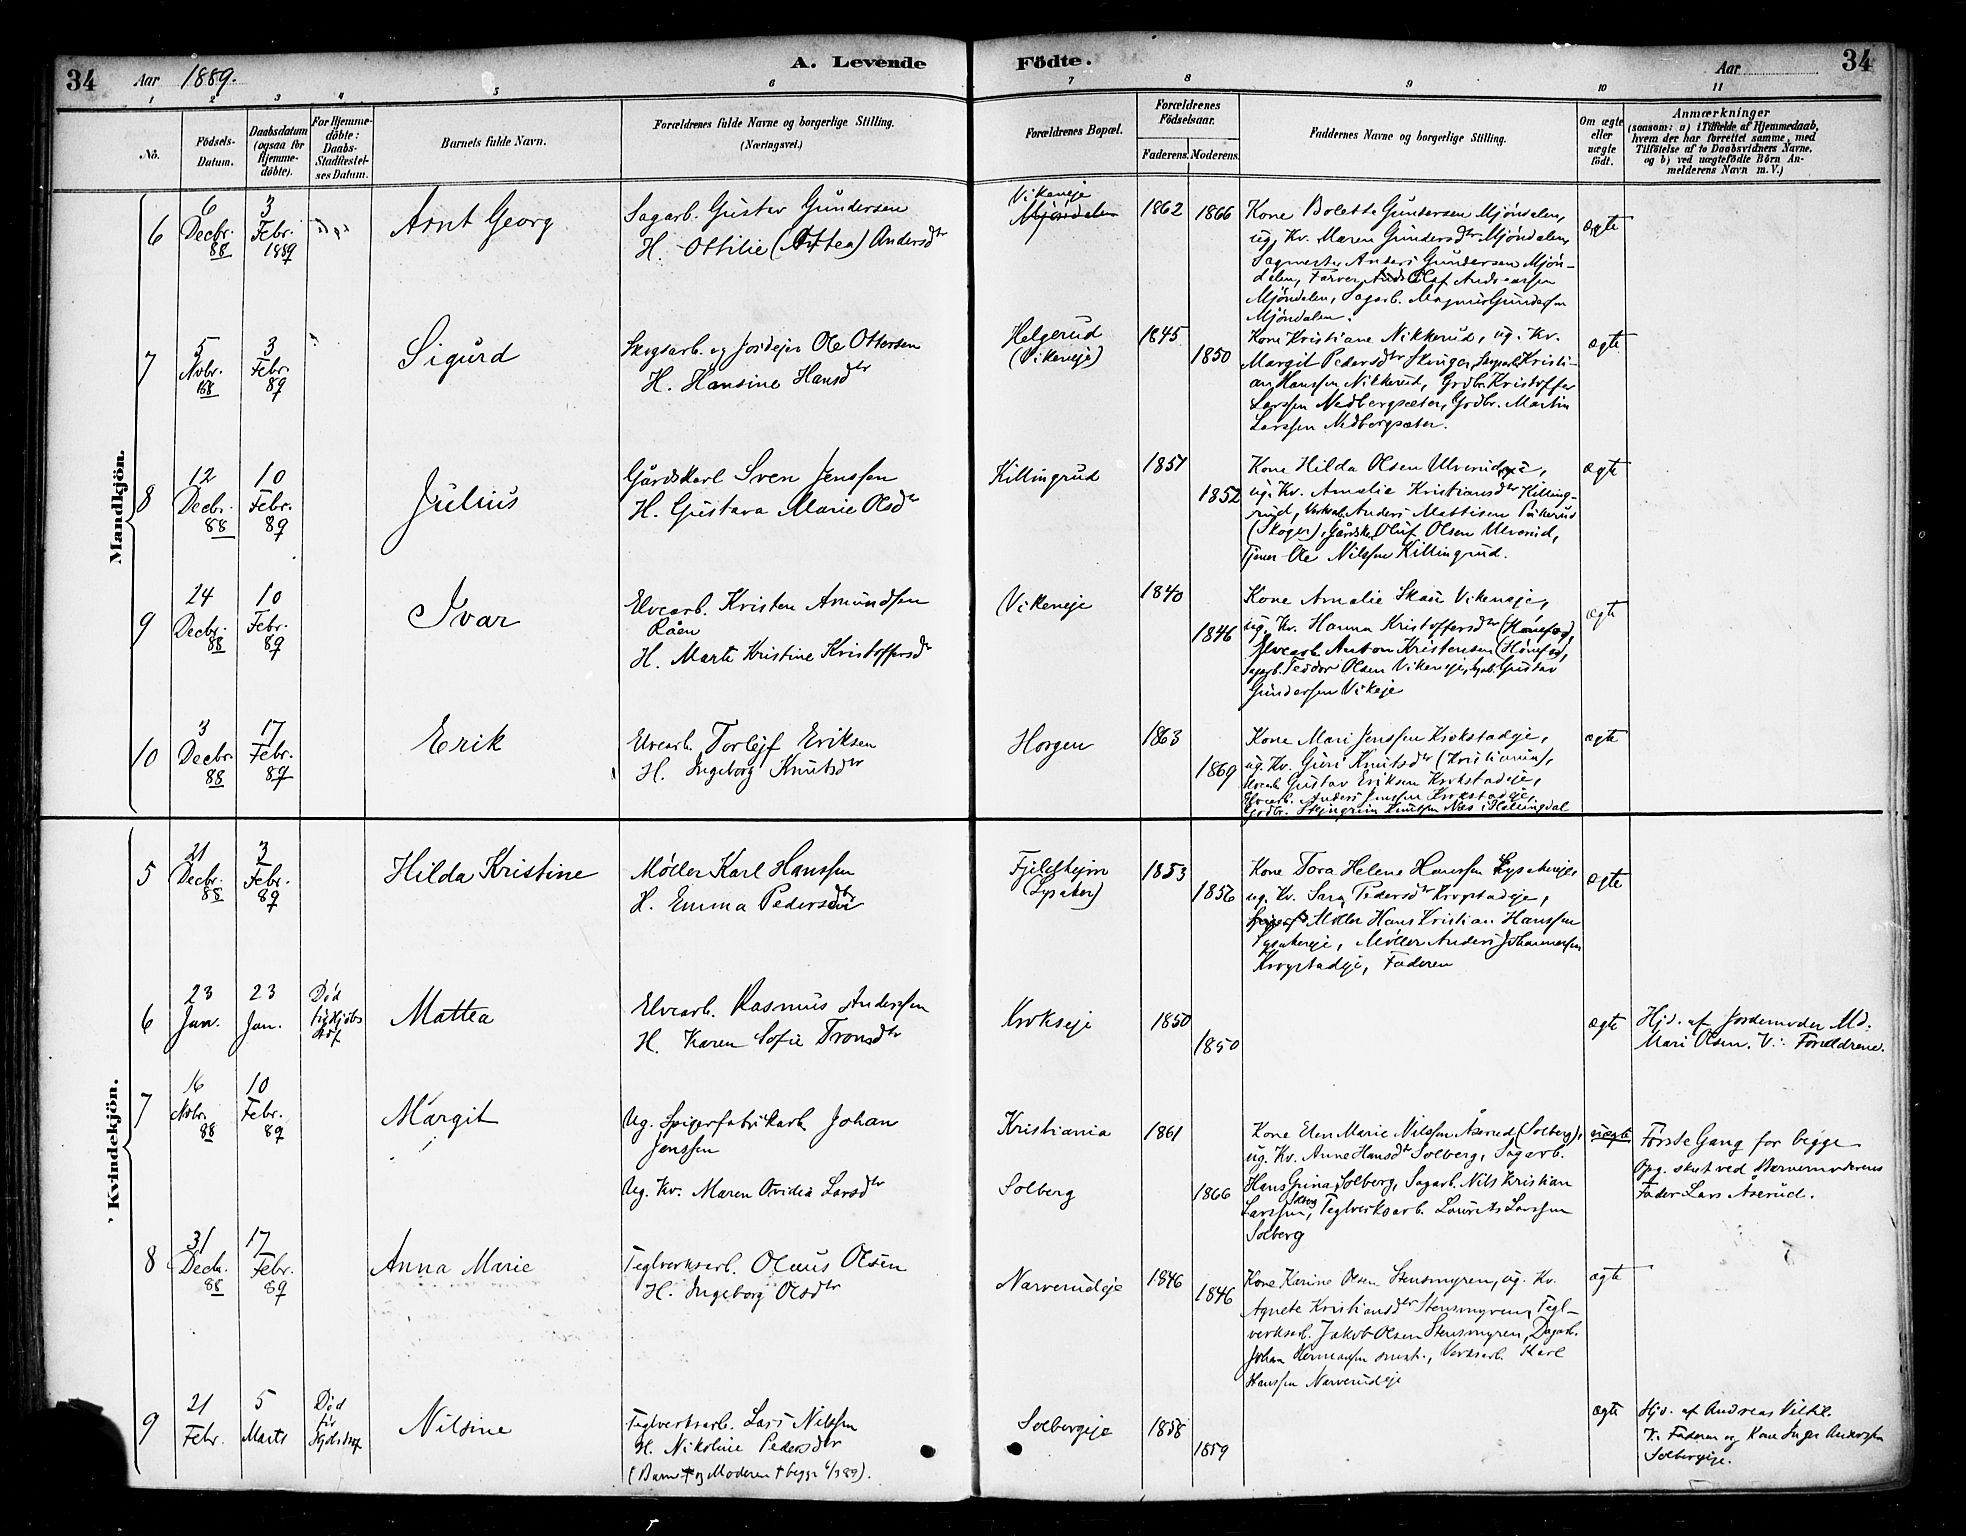 34 Aar 1889. A. Levende Födte. Aar 34
1 2 3 4 5 6 7 8 9 10 11
No.
Födsels-
Datum.
Daabsdatum
(ogsaa for
Hjemme-
döbte).
For Hjemme-
döbte:
Daabs-
Stadfæstel-
ses Datum.
Barnets fulde Navn.
Forældrenes fulde Navne og borgerlige Stilling.
(Næringsvei.)
Forældrenes Bopæl.
Forældrenes
Födselsaar.
Faderens. Moderens.
Faddernes Navne og borgerlige Stilling.
Om ægte
eller
uægte
födt.
Anmærkninger
(saasom: a) i Tilfælde af Hjemmedaab,
hvem der har forrettet samme, med
Tilföielse af to Daabsvidners Navne,
og b) ved uægtefödte Börn An-
melderens Navn m. V.)
Mandkjön.
6
6
Decbr.
88
3
Febr.
1889
Arnt Georg
Sagarb. Gustav Gundersen
H. Ottilie (Attea) Andersdtr
Vikeneje
Mjøndalen
1862
1866
Kone Bolette Gundersen Mjøndalen,
ug. Kv. Maren Gundersdtr Mjøndalen,
Sagmester Anders Gundersen Mjøn-
dalen, Farver Olaf Andreassen
Mjøndalen, Sagarb. Magnus Gundersen
Mjøndalen.
ægte
7
5
Novbr.
88
3
Febr.
89
Sigurd
Skogsarb. og Jordejer Ole Ottersen
H. Hansine Hansdtr
Helgerud
(Vikeneje)
1845
1850
Kone Kristiane Nikkerud, ug. Kv.
Margit Pedersdtr Skuger, Kristi-
an Hanssen Nikkerud, Grdbr. Kristoffer
Larssen Nedbergsæter, Grdbr. Martin
Larssen Nedbergsæter.
ægte
8
12
Decbr.
88
10
Febr.
89
Julius
Gårdskarl Sven Jenssen
H. Gustava Marie Olsdtr
Killingrud
1851
1852
Kone Hilda Olsen Ulverudeje,
ug. Kv. Amalie Kristiansdtr Killing-
rud, Verksarb. Anders Mattisen
(Skoger), Gårdsk. Oluf Olsen Ulverud,
Tjener Ole Nilssen Killingrud.
ægte
9
24
Decbr.
88
10
Febr.
89
Ivar
Elvearb. Kristen Amundsen
Råen
H. Marte Kristine Kristoffersdtr
Vikeneje
1840
1846
Kone Amalie Skau Vikeneje,
ug. Kv. Hanna Kristoffersdtr (Hønefos),
Elvearb. Anton Kristensen (Hønefos),
Sagarb. Teodor Olsen Vikeneje, Sagarb. Gustav
Gundersen Vikeje
ægte
10
3
Decbr.
88
17
Febr.
89
Erik
Elvearb. Torlejf Eriksen
H. Ingeborg Knutsdtr
Horgen
1863
1869
Kone Mari Jenssen Krokstadeje,
ug. Kv. Guri Knutsdtr (Kristiania),
Elvearb. Gustav Eriksen Krokstadeje,
Elvearb. Anders Jenssen Krokstadeje,
Grdbr. Skjngrim Knutssen Næs i Hallingdal
ægte
Kvindekjön.
5
21
Decbr.
88
3
Febr.
89
Hilda Kristine
Møller Karl Hanssen
H. Emma Pedersdtr
Fjeldhejm
(Lysaker)
1853
1856
Kone Tora Helene Hanssen Lysakereje,
ug. Kv. Sara Pedersdtr Krogstadeje,
Møller Hans Kristian Hanssen
Lysakereje, Møller Anders Johannessen
Krogstadeje, Faderen
ægte
6
23
Jan.
23
Jan.
Død
Mattea
Elvearb. Rasmus Anderssen
H. Karen Sofie Tronsdtr
Krokseje
1850
1850
ægte
Hjd. af Jordemoder Md.
Mari Olsen. V.: Forældrene.
7
16
Novbr.
88
10
Febr.
89
Margit
Ug. Spigerfabrikarb. Johan
Jenssen
Ug. Kv. Maren Ovidia Larsdtr
Kristiania
Solberg
1861
1866
Kone Elen Marie Nilssen Åserud (Solberg),
ug. Kv. Anne Hansdtr Solberg, Sagarb.
Hans Grina Solberg, Sagarb. Nils Kristian
Larssen Solberg, Teglverksarb. Laurits Larssen
Solberg
uægte
Første Gang for begge
Opg. sket ved Barnemoderens
Fader Lars Åserud.
8
31
Decbr.
88
17
Febr.
89
Anna Marie
Teglverksarb. Olaus Olsen
H. Ingeborg Olsdtr
Narverudeje
1846
1846
Kone Karine Olsen Stensmyren, ug. Kv.
Agnete Kristiansdtr Stensmyren, Tegl-
verksarb. Jakob Olsen Stensmyren, Dagarb.
Johan Hermansen smst., Verksarb. Karl
Hanssen Narverudeje
ægte
9
21
Febr.
5
Marts
Død
før
Nilsine
Teglverksarb. Lars Nilssen
H. Nikoline Pedersdtr
(Barn † og Moderen † begge 6/3 89).
Solbergeje
1858
1859
ægte
Hjd. af Andreas Viltil.
V. Faderen og Kone Inger Anderssen
Solbergeje.